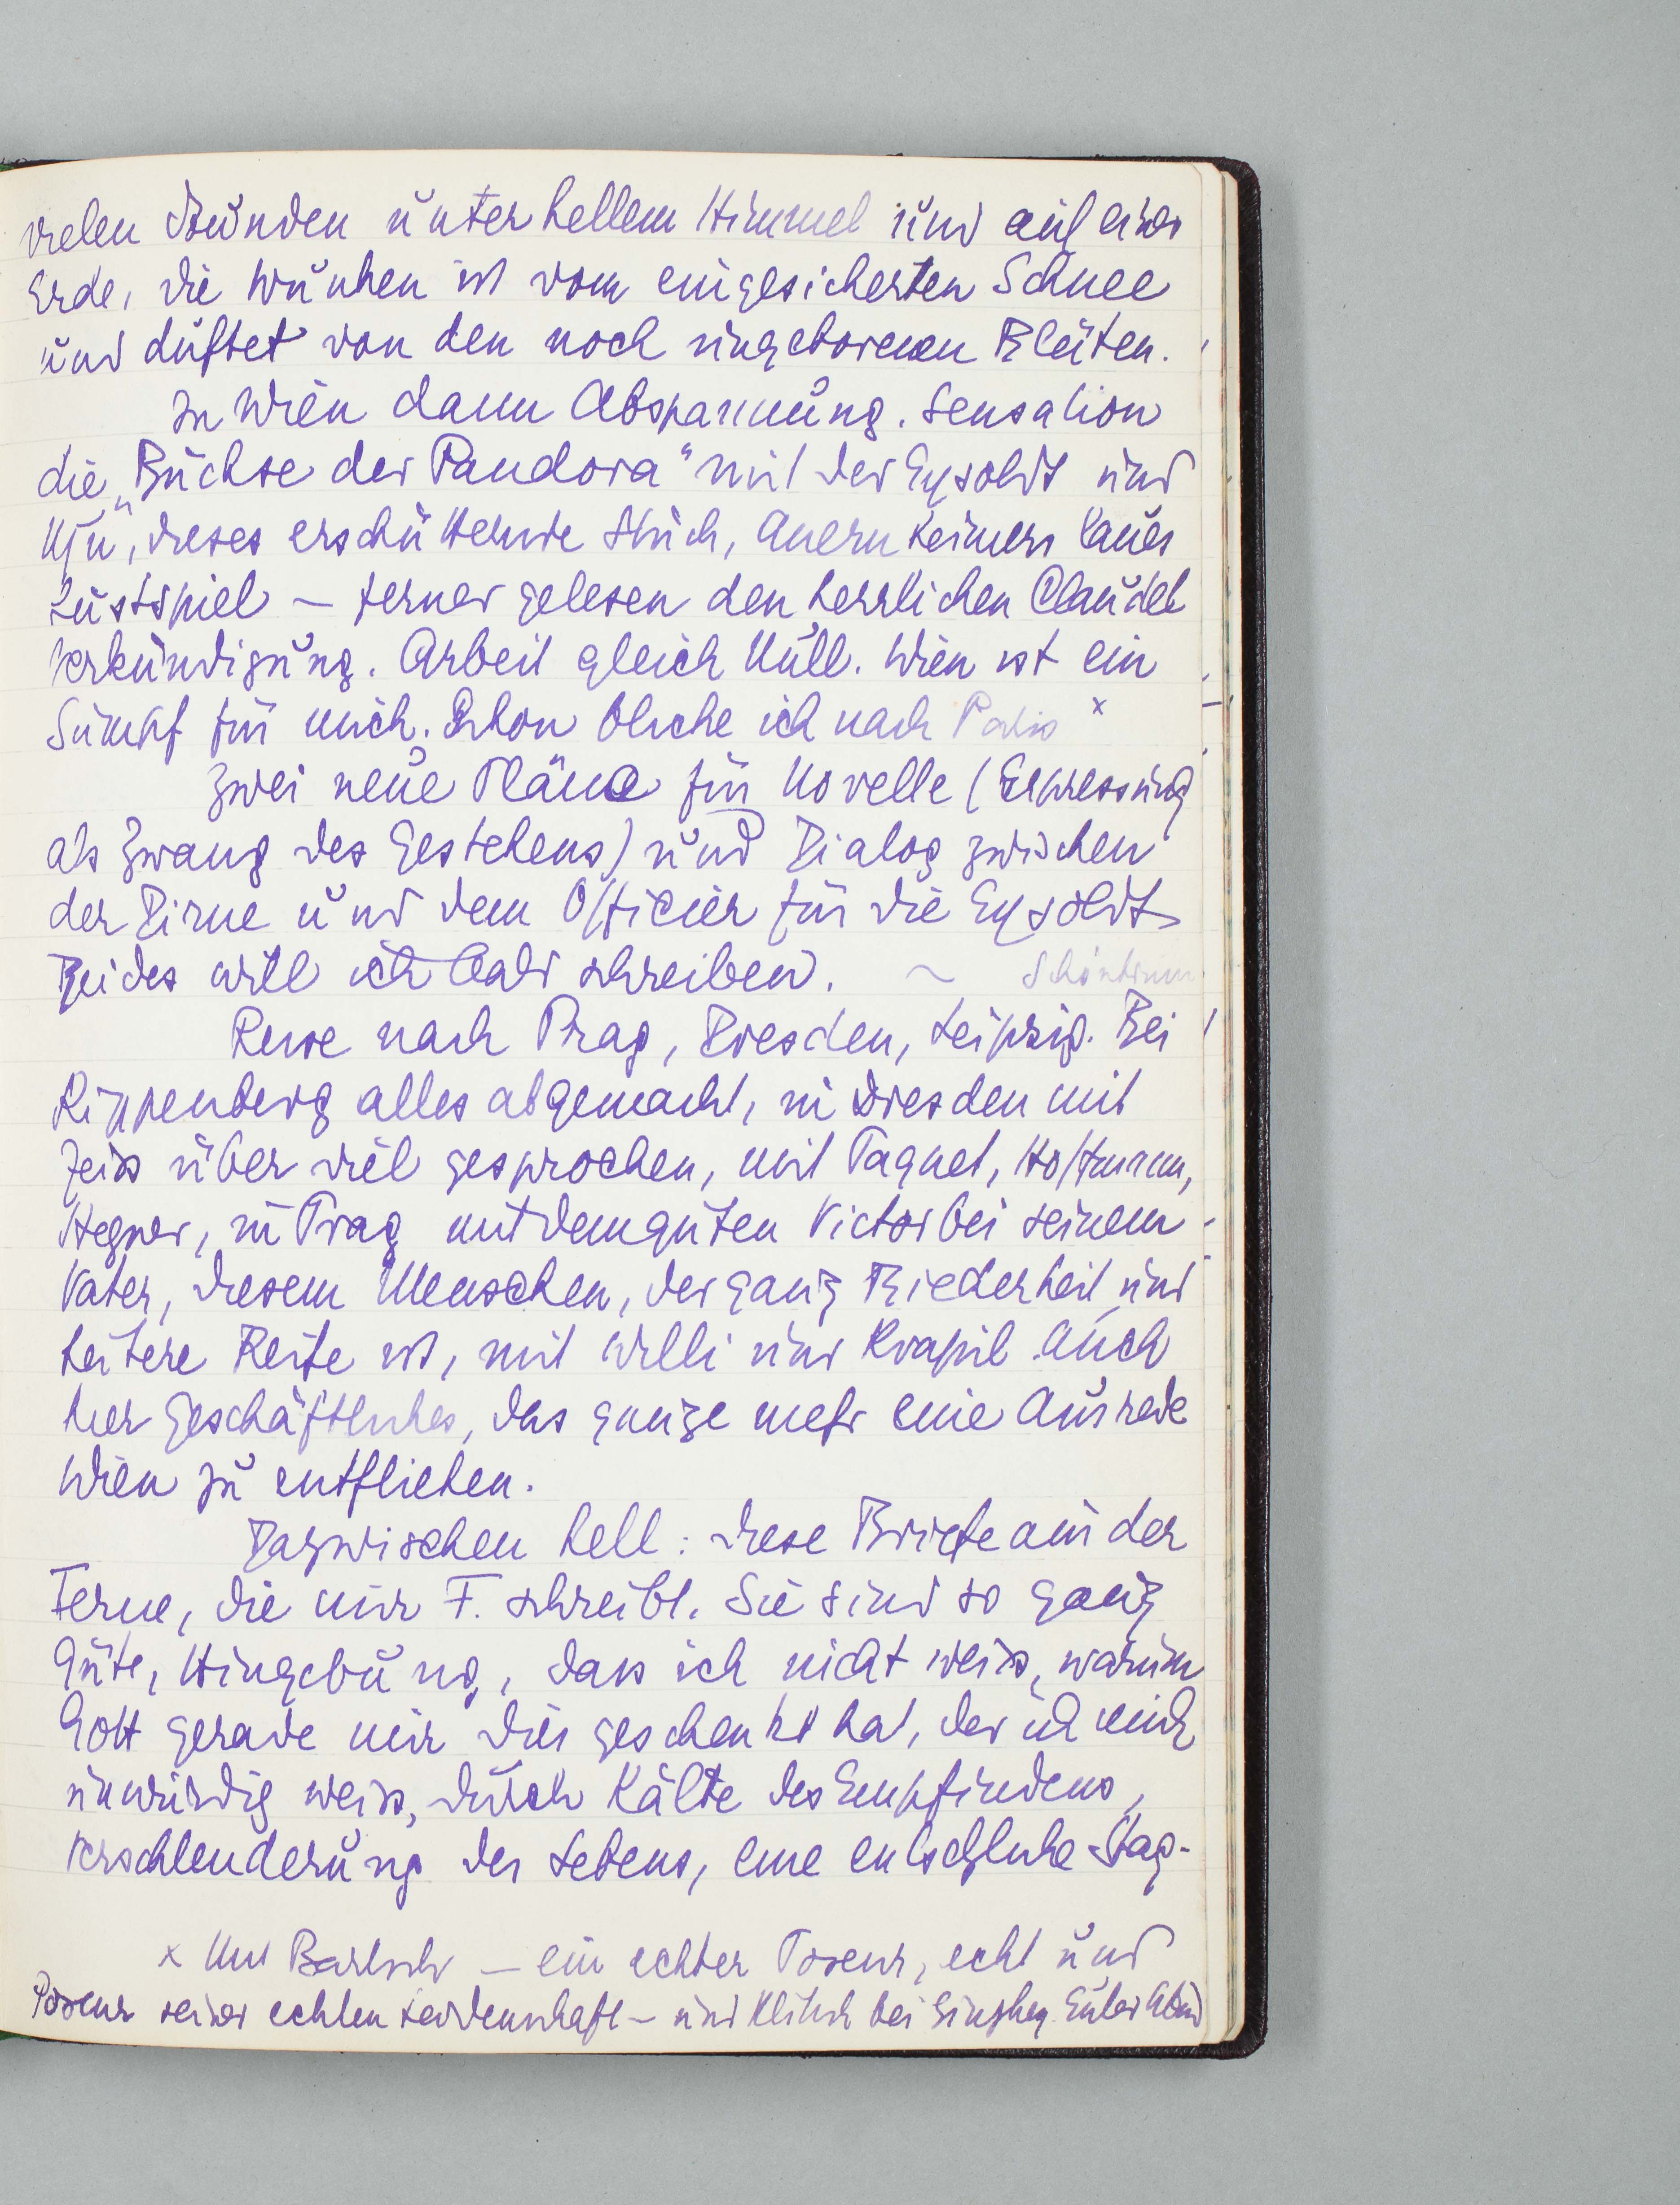 vielen Stunden unter hellem Himmel und auf einer
Erde, die trunken ist vom eingesickerten Schnee
und duftet von den noch ungeborenen Blüten.
In Wien dann Abspannung. Sensation
die „Büchse der Pandora" mit der Eysoldt und
dieses erschütternde Stück,
Lustspiel – ferner gelesen den herrlichen Claudel
Verkündigung. Arbeit gleich Null. Wien ist ein
Sumpf für mich. Schon blicke ich nach Paris x
Zwei neue Pläne für Novelle (Erpressung
als Zwang des Gestehens) und Dialog zwischen
der Dirne und dem Officier für die Eysoldt
Beides will ich bald schreiben. ~
Reise nach Prag, Dresden, Leipzig. Bei
Kippenberg alles abgemacht, in Dresden mit
Zeiss über viel gesprochen, mit Taquet, Hoffmann,
Hegner, in Prag mit dem guten Victor bei seinem
Vater, diesem Menschen, der ganz Biederkeit und
heitere Reife ist, mit Willi und Kvapil. Auch
hier Geschäftliches, das ganze mehr eine Ausrede
Wien zu entfliehen.
Dazwischen hell: diese Briefe aus der
Ferne, die mir F. schreibt. Sie sind so ganz
Güte, Hingebung, dass ich nicht weiss, warum
Gott gerade mir dies geschenkt hat, der ich mich
unwürdig weiss, durch Kälte des Empfindens,
Verschleuderung des Lebens, eine entsetzliche Stag-
x Mit Bartsch – ein echter Poseur, echt und
Poseur seiner echten Leidenschaft – und bei Ginzkey. Guter Abend